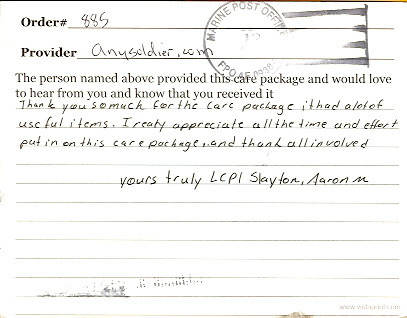 Order# 885
MARINE POST OFFICE
FPO AE
Provider anysoldier.com
The person named above provided this care package and would love
to hear from you and know that you received it
Thank you so much for the care package it had alot of
useful items. I realy appreciate all the time and effort
put in on this care package. and thank all involved
yours truly LCPl Slayton, Aaron M
www.vistaprint.com